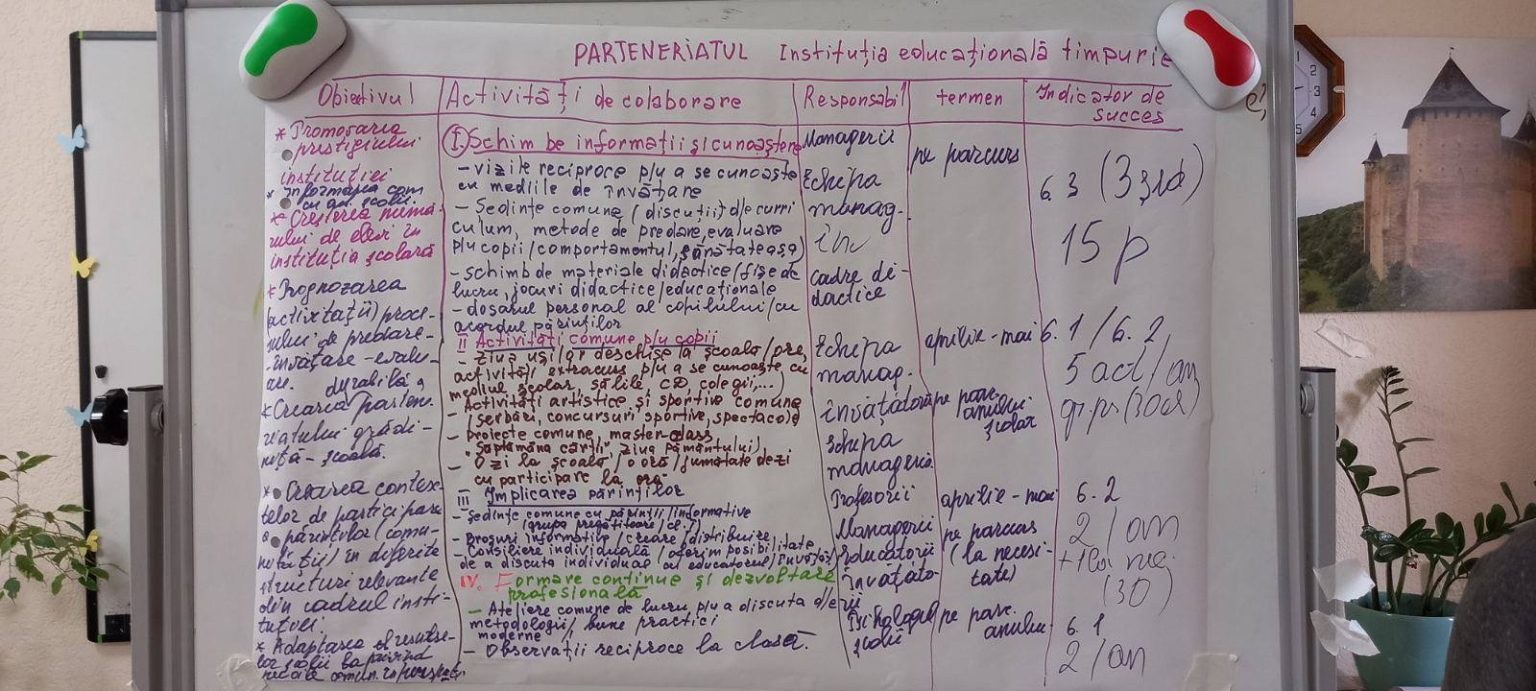 PARTENERIATUL Instituția educațională timpurie
Obiectivul
Activități de colaborare
Responsabil
termen
Indicator de
succes
* Promovarea
prestigiului
instituției
* informarea com
cu școlii.
* Creșterea numă
rului de elevi în
instituția școlară
* Prognozarea
proce-
sului de predare-
învățare-evalu-
are. durabilă
* Crearea partene
riatului grădi-
niță - școală.
* Crearea contex-
telor de participare
a părinților (comu-
nității) în diferite
structuri relevante
din cadrul insti-
tuției.
* Adaptarea el.
I. Schimb be informații și cunoaștere
- vizite reciproce p/u a se cunoaște
cu mediile de învățare
- Ședințe comune (discuții) d/e curri
culum, metode de predare, evaluare
p/u copii/comportamentul, sănătatea șa)
- schimb de materiale didactice/fișe de
lucru, jocuri didactice/educaționale
- dosarul personal al copilului/cu
acordul părinților
II Activități comune p/u copii
- Ziua ușilor deschise la școala/ore,
activități extracurs p/u a se cunoaște cu
mediul școlar, sălile, CD, colegii,...)
- Activități artistice și sportive comune
(serbări, concursuri sportive, spectacole
- proiecte comune, master-class
"Săptămâna cărții", ziua Pământului),
- O zi la școală/o oră/jumătate de zi
cu participare la ore
III Implicarea părinților
- ședințe comune cu părinții/informative
(grupa pregătitoare/cl. I)
- Broșuri informative/creare/distribuire
- Consiliere individuală/oferim posibilitate
de a discuta individual cu educatorul/
IV. Formare continue și dezvoltare
profesională
- Ateliere comune de lucru p/u a discuta d/e
metodologii/bune practici
moderne
- Observații reciproce la clasă.
Managerii
Echipa
manag.
în
cadre di-
dactice
Echipa
manag.
învățătorii
Echipa
managerià
Profesorii
Managerii
Educatorii
învățăto-
rii
Psihologul
școlii
pe parcurs
aprilie - mai
pe parc.
anului
școlar
aprilie - mai
pe parcurs
(la necesi-
tate)
pe parc.
anului
6.3
15 p
6.1/6.2
5 act/an
6.2
2/an
(30)
6.1
2/an